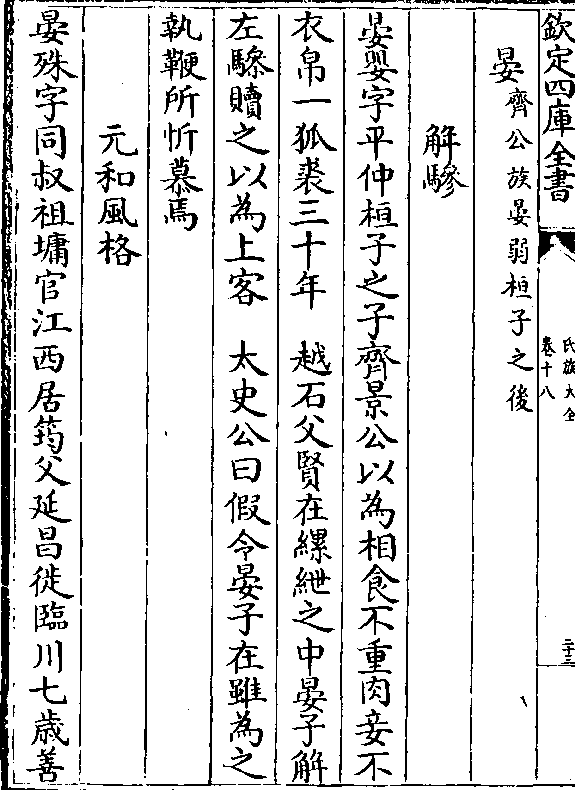 欽定四庫全書
氏族大全
卷十八
二十三
晏齊公族晏弱桓子之後
解驂
晏嬰字平仲桓子之子齊景公以為相食不重肉妾不
衣帛一狐裘三十年　越石父賢在縲紲之中晏子解
左驂贖之以為上客　太史公曰假令晏子在雖為之
執鞭所忻慕焉
元和風格
晏殊字同叔祖墉官江西居筠父延昌徙臨川七歲善